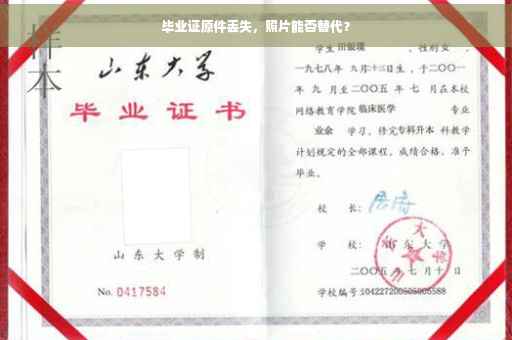 毕业证原件丢失，照片能否替代？
样本
山东大学
毕业证书
山东大学制
No. 0417584
学生 田银環 ，性别女，
一九七八年 九月十三日生，于二〇〇一
年 九 月至二〇〇五 年 七 月在本校
网络教育学院 临床医学 专业
业余 学习，修完专科升本 科教学
计划规定的全部课程，成绩合格，准予
毕业。
校 长：
学 校：山东大学
二〇〇五 年 七 月 十 日
学校编号:104227200505005588